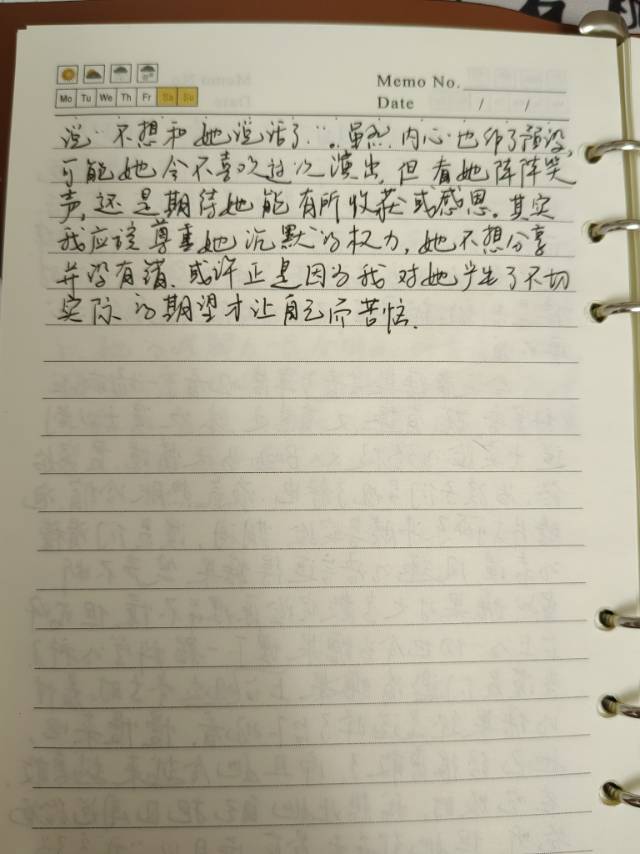 Memo No.
Mo Tu We Th Fr Sa Su
Date / /
说"不想和她说话了"。虽然内心也作了预设,
可能她会不喜欢这次演出,但看她阵阵笑
声,还是期待她能有所收获或感思。其实
我应该尊重她沉默的权力,她不想分享
并没有错,或许正是因为我对她产生了不切
实际的期望才让自己而苦恼.